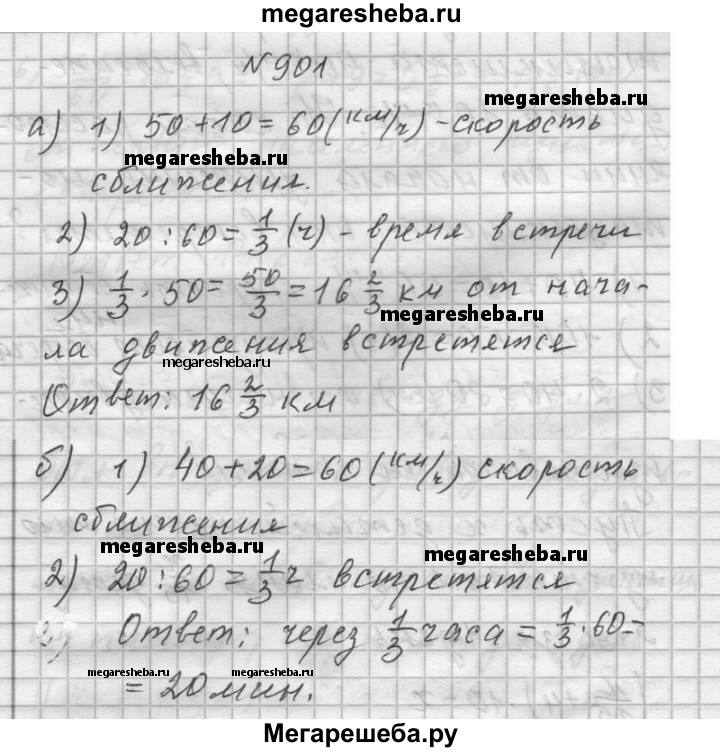 megaresheba.ru
N 901
megaresheba.ru
а) 1) 50+10=60(км/ч)-скорость
megaresheba.ru
сближения.
2) 20:60=1/3 (ч) - время встречи
3) 1/3 · 50 = 50/3 = 16 2/3 км от нача-
megaresheba.ru
ла движения встретятся
megaresheba.ru
Ответ: 16 2/3 км
б) 1) 40+20=60(км/ч) скорость
сближения
megaresheba.ru
megaresheba.ru
2) 20:60=1/3 ч встретятся
Ответ: через 1/3 часа = 1/3 · 60 =
megaresheba.ru
megaresheba.ru
= 20 мин.
Мегарешеба.ру